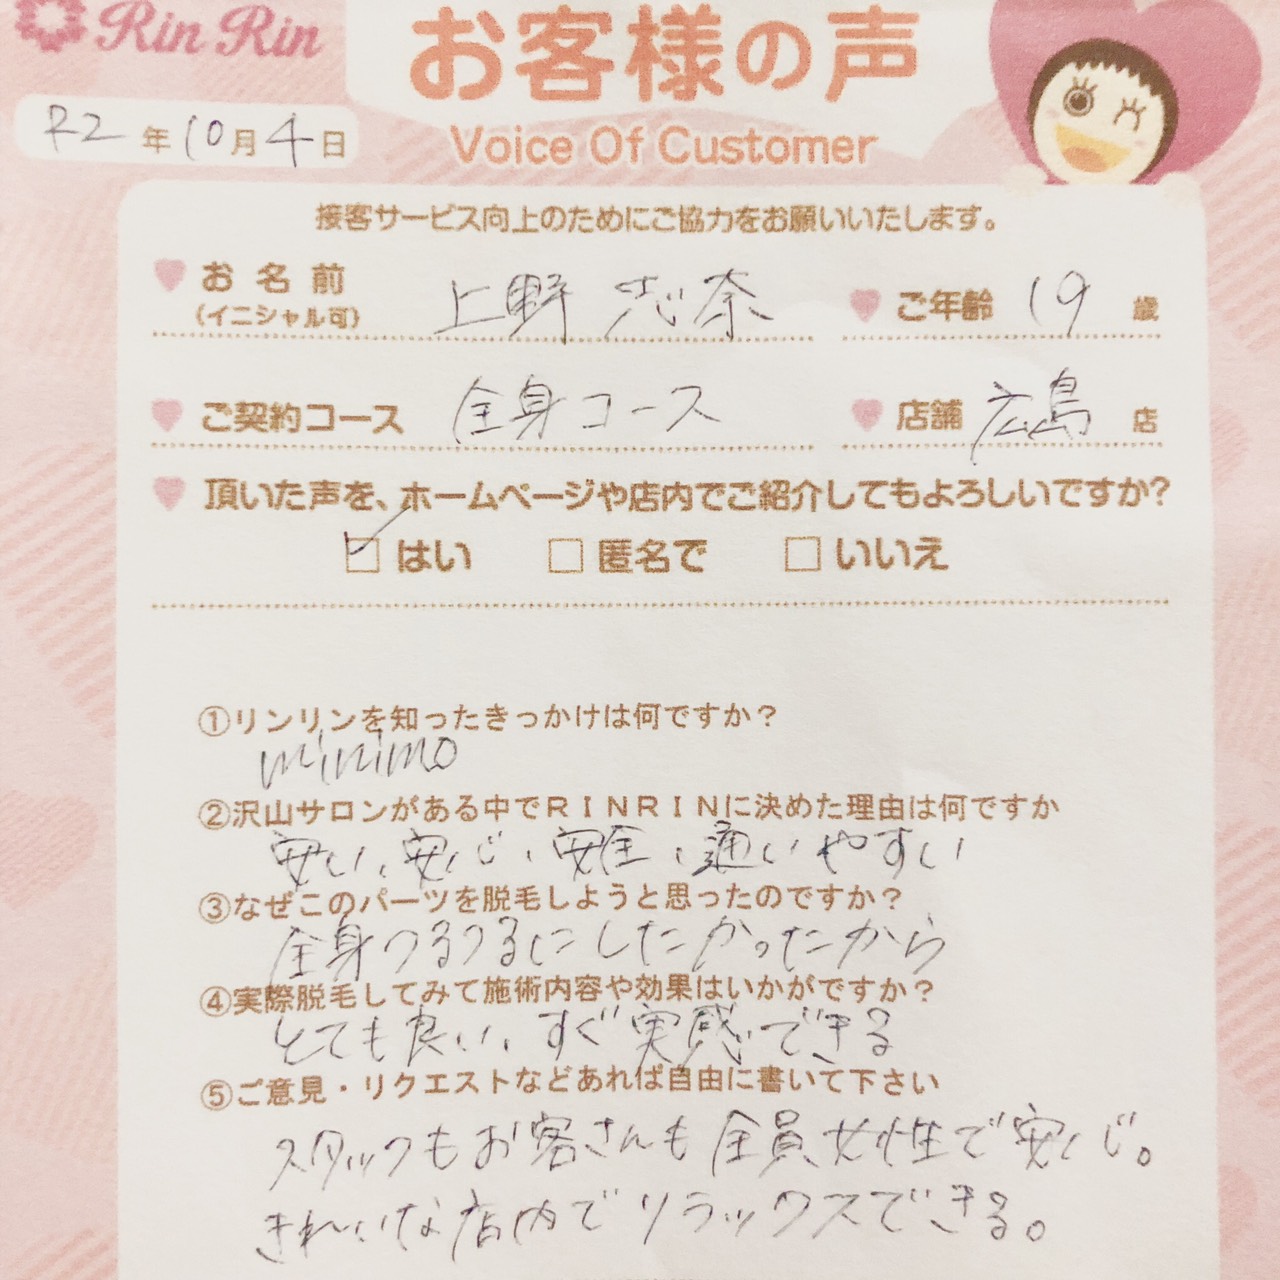 Rin Rin
お客様の声
Voice Of Customer
R2年10月4日
接客サービス向上のためにご協力をお願いいたします。
お名前 上野 志奈
(イニシャル可)
ご年齢 19歳
ご契約コース 全身コース
店舗 広島店
頂いた声を、ホームページや店内でご紹介してもよろしいですか?
はい 匿名で いいえ
①リンリンを知ったきっかけは何ですか?
minimo
②沢山サロンがある中でRINRINに決めた理由は何ですか
安い、安心、安全、通いやすい
③なぜこのパーツを脱毛しようと思ったのですか?
全身つるつるにしたかったから
④実際脱毛してみて施術内容や効果はいかがですか?
とても良い、すぐ実感できる
⑤ご意見・リクエストなどあれば自由に書いて下さい
スタッフもお客さんも全員女性で安心。
きれいな店内でリラックスできる。